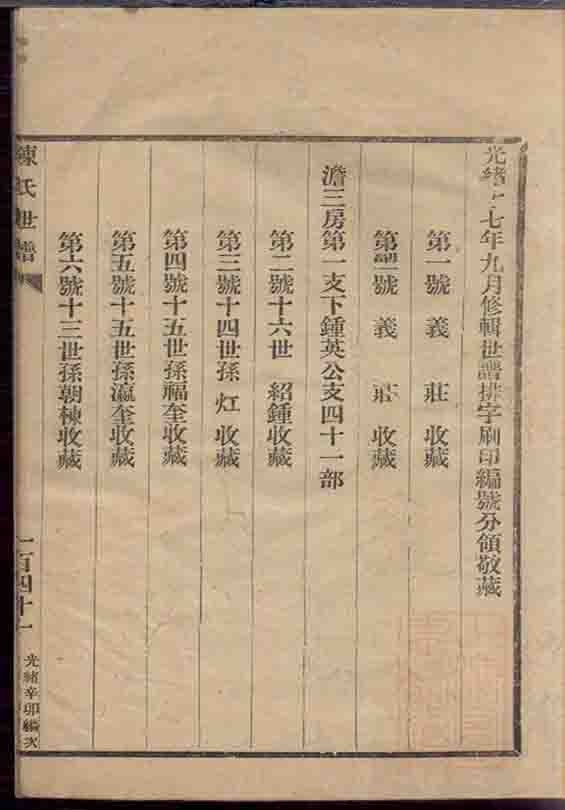 光緒十七年九月修輯世譜排字刷印編號分領敬藏
第一號義莊收藏
第號義莊收藏
澹三房第一支下鍾英公支四十一部
第二號十六世紹鍾收藏
第三號十四世孫灴收藏
第四號十五世孫福奎收藏
第五號十五世孫瀛奎收藏
第六號十三世孫朝棟收藏
陳氏世譜
一百四十一
光緒辛卯編次